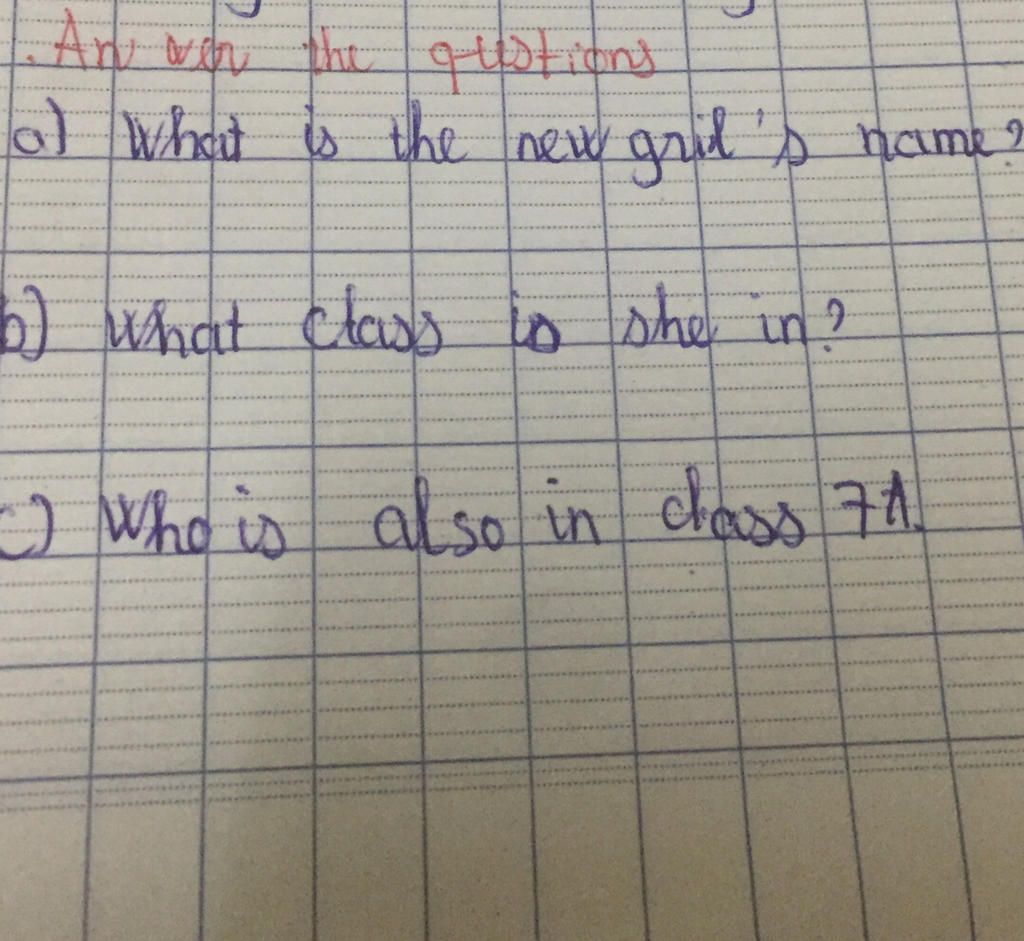 . An wer the qustions
a) What is the new gril's name?
b) What class is she in?
c) Who is also in class 7A.